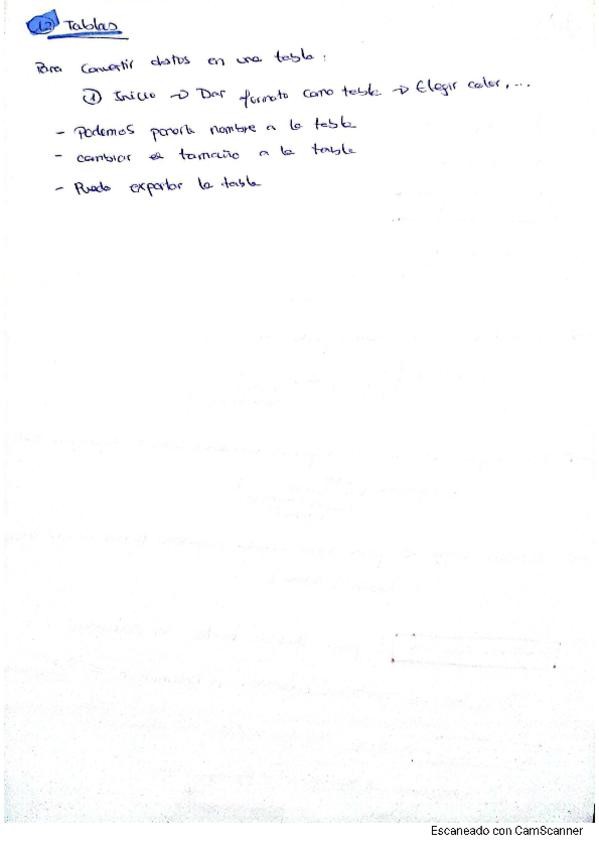 12 Tablas
Para convertir datos en una tabla:
① Inicio → Dar formato como tabla → Elegir color, ...
- Podemos ponerle nombre a la tabla
- cambiar el tamaño a la tabla
- Puedo exportar la tabla
Escaneado con CamScanner